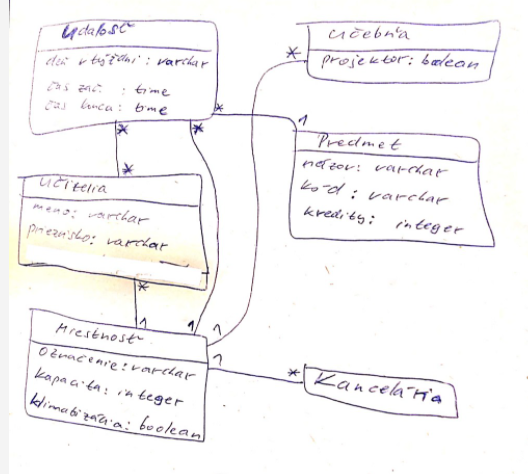 Udalosť
deň v týždni : varchar
čas zač. : time
čas konca : time
*
*
*
Učebňa
projektor : boolean
*
1
Predmet
názov : varchar
kód : varchar
kredity : integer
*
Učitelia
meno : varchar
priezvisko : varchar
*
1
1
1
1
Miestnosť
Označenie : varchar
kapacita : integer
klimatizácia : boolean
*
Kancelária